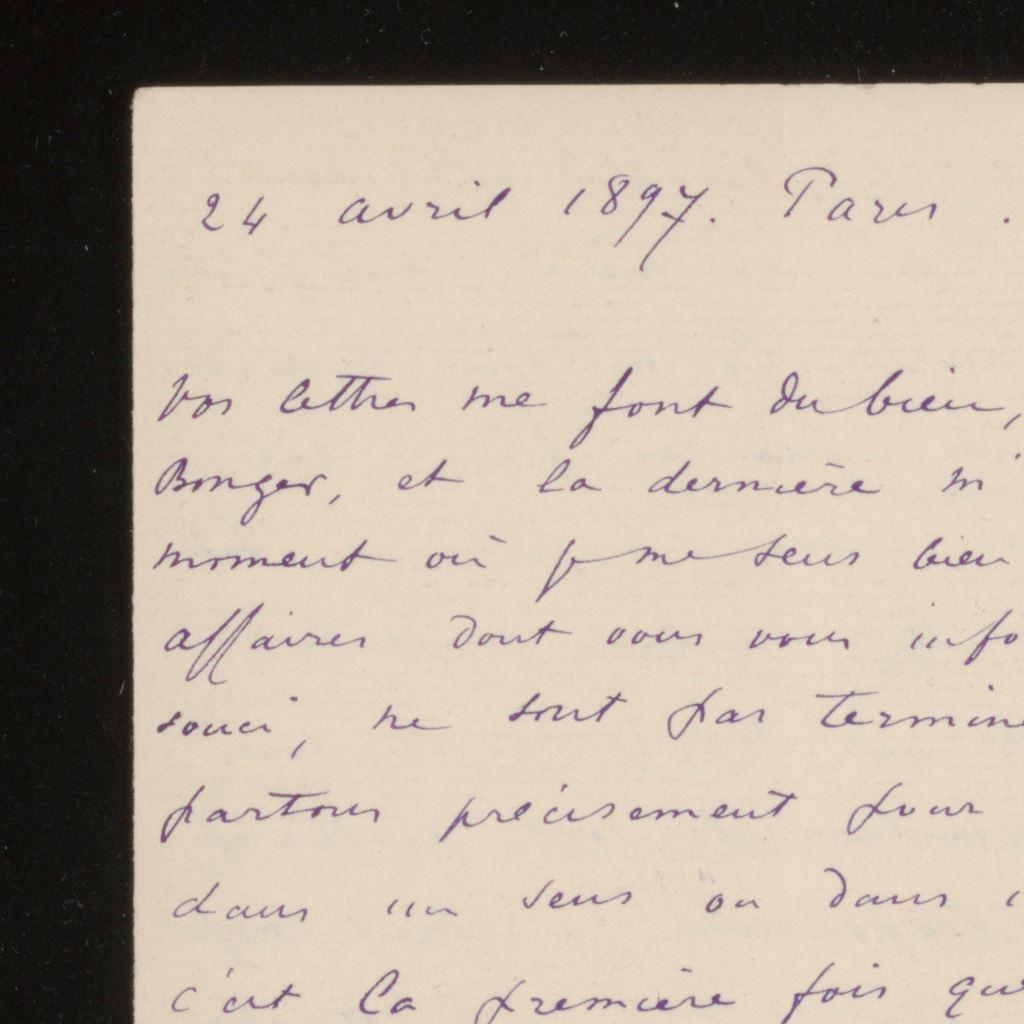 24 avril 1897. Paris.
Vos lettres me font du bien,
Bonger, et la dernière m'
moment où je me sens bien
affaires dont vous vous info
souci, ne sont pas termine
partons précisement pour
dans un sens ou dans
c'est la première fois que